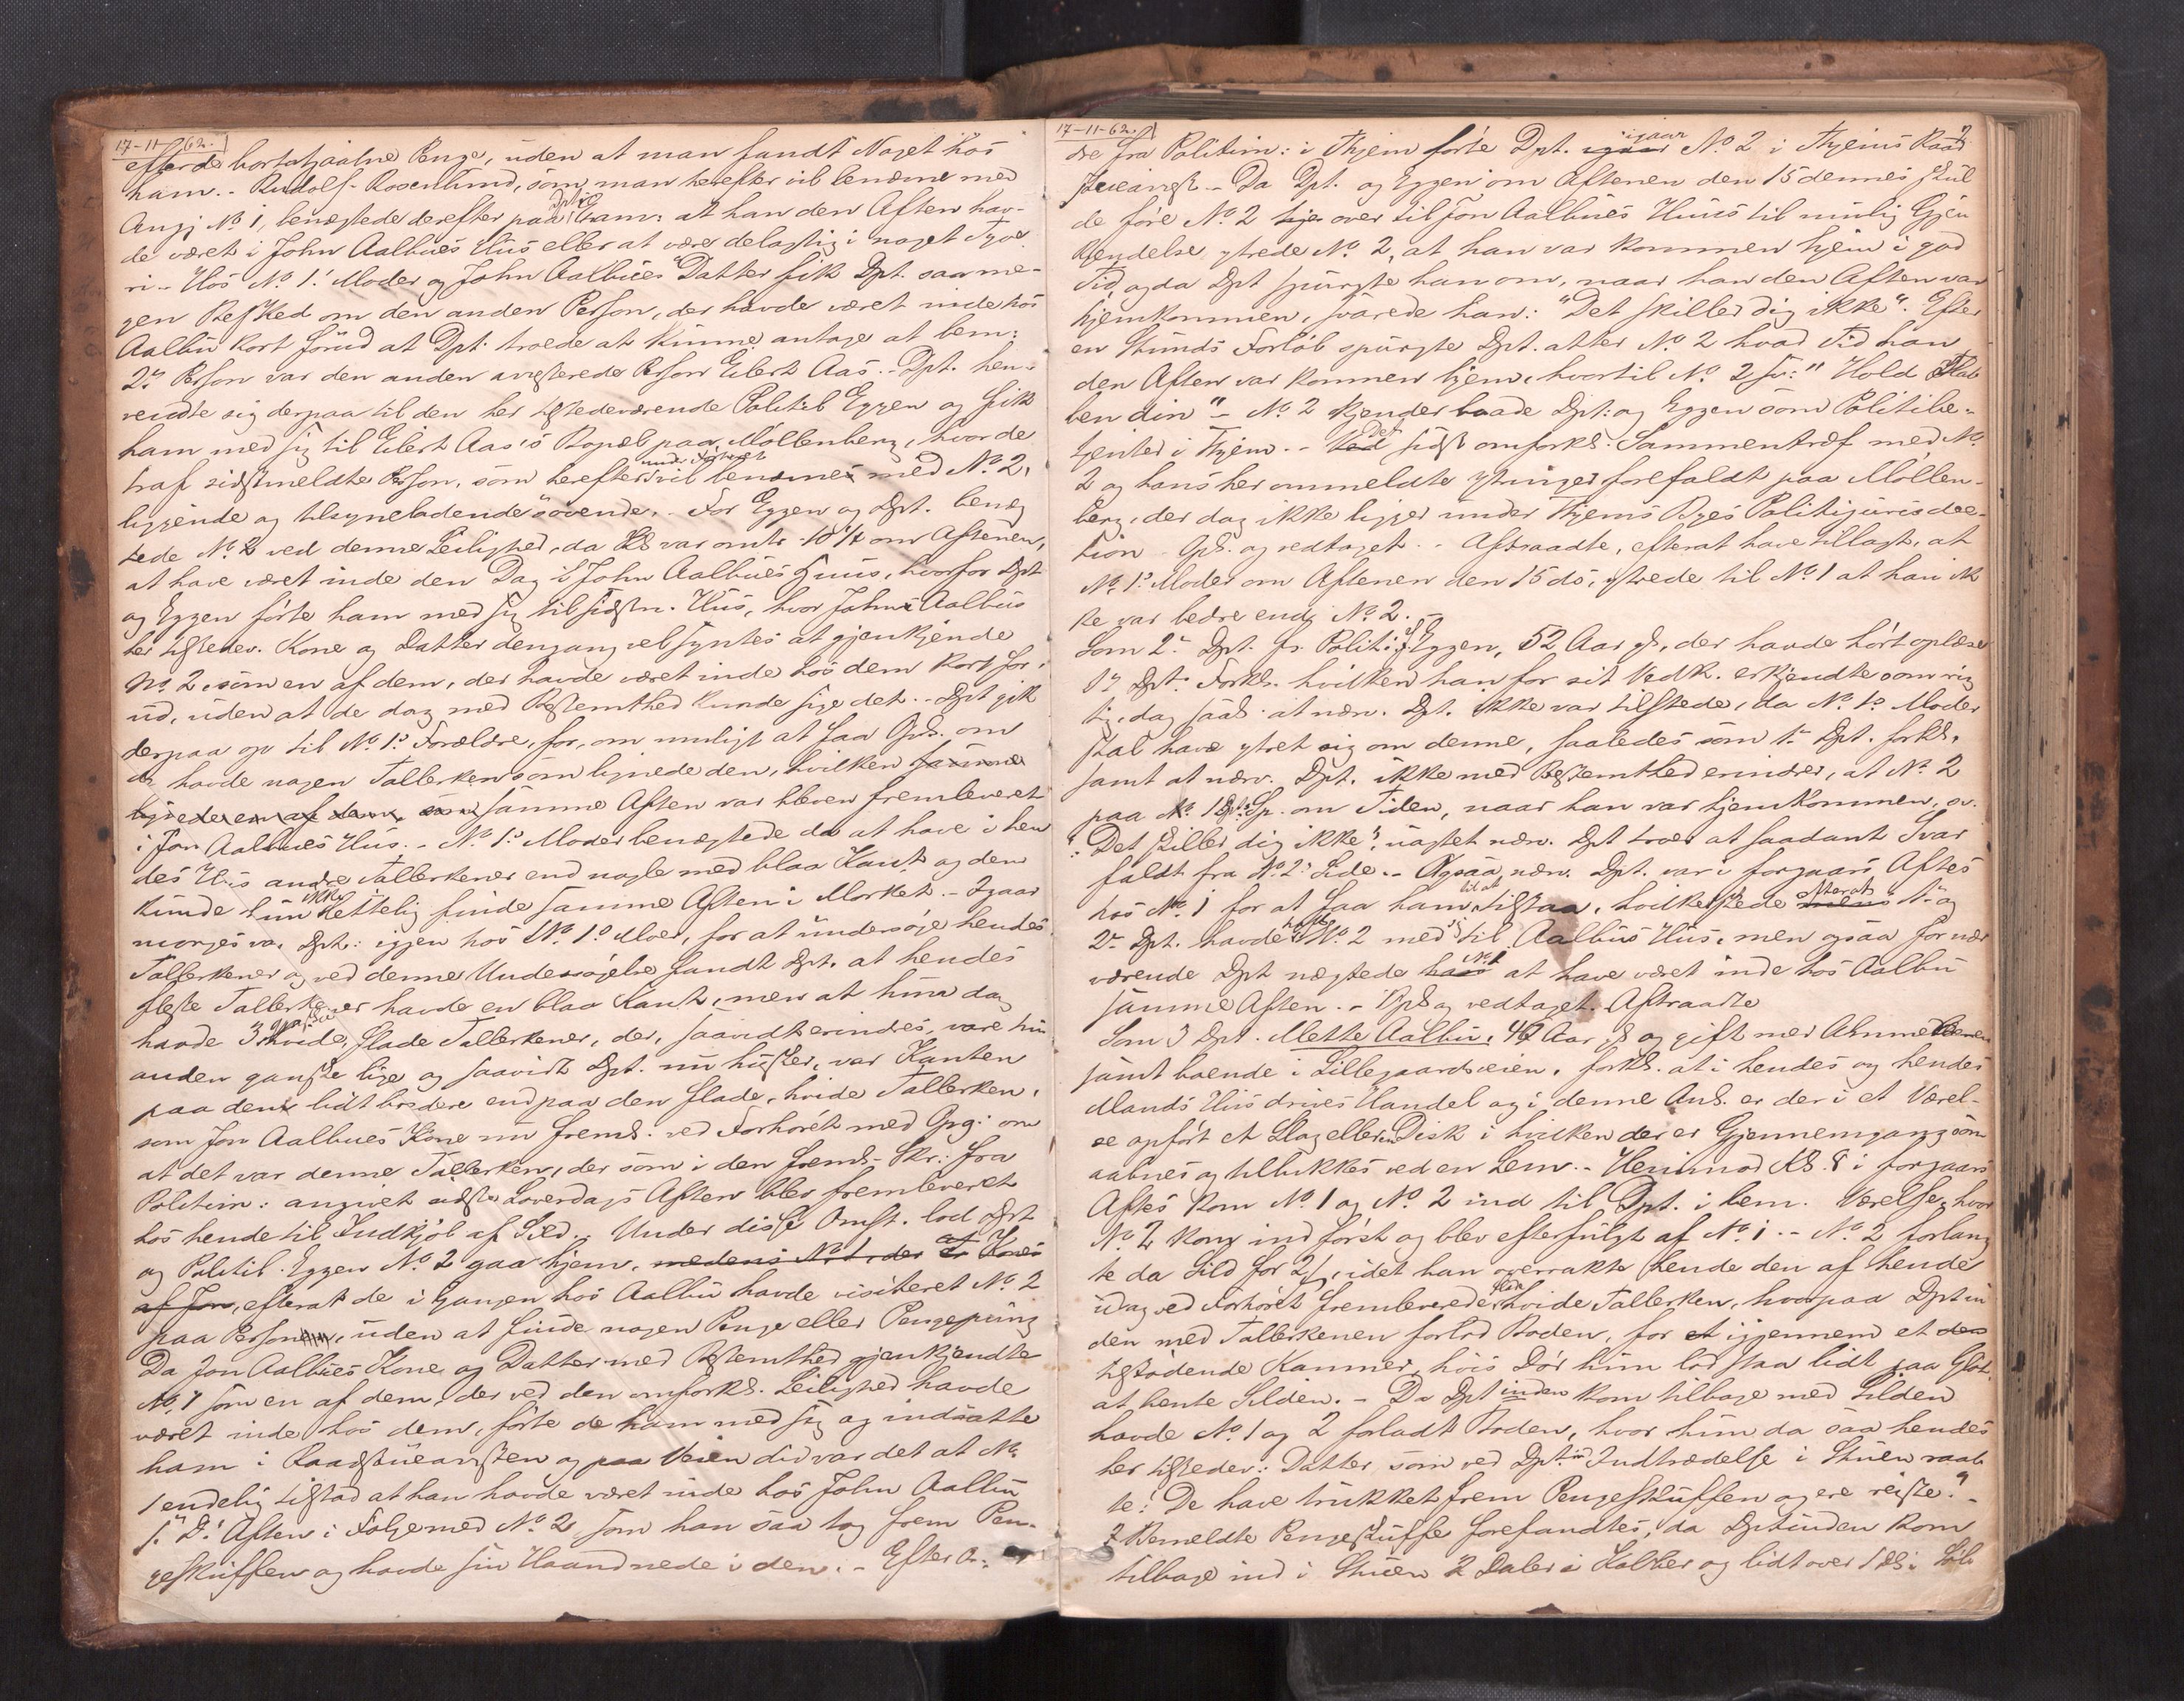 17-11-62.
efter de bortstjaalne Penge, uden at man fandt Noget hos
ham. - Rudolf Rosenlund, som man herefter vil benævne med
Angj No 1, benægtede derefter paa at han den Aften hav-
de været i John Aalbues Hus eller at være delagtig i noget Tyve
ri - Hos No 1s Moder og John Aalbues Datter fik Dpt. saa me-
gen Besked om den anden Person, der havde været inde hos
Aalbu kort førud at Dpt. troede at kunne antage at bem:
2n Person var den anden arresterede Person Eilert Aas. - Dpt. hen-
vendte sig derpaa til den her tilstedeværende Politib Eggen og fik
ham med sig til Eilert Aas's Bopæl paa Møllenberg, hvor de
traf sidstmeldte Person, som herefter under Forhøret vil benævnes med No 2,
liggende og tilsyneladende sovende. - For Eggen og Dpt. benæg
tede No 2 ved denne Leilighed, da Kl var omtr. 10 1/4 om Aftenen,
at have været inde den Dag i John Aalbues Huus, hvorfor Dpt
og Eggen førte ham med sig til sidstn. Hus, hvor John Aalbus
her tilstedev. Kone og Datter dengang vel syntes at gjenkjende
No 2, som en af dem, der havde været inde hos dem kort for-
ud, uden at de dog med Bestemthed kunde sige det. - Dpt gik
derpaa op til No 1s Forældre, for, om muligt at faa Opl. om
de havde nogen Tallerken som lignede den, hvilken samme
lignede en af dem, som samme Aften var bleven fremleveret
i Jon Aalbues Hus. - No 1s Moder benægtede da at have i hen
des Hus andre Tallerkener end nogle med blaa Kant og dem
kunde hun ikke lettelig finde samme Aften i Mørket. - Igaar
morges var Dpt: igjen hos No 1s Moer, for at undersøge hendes
Tallerkener og ved denne Undersøgelse fandt Dpt. at hendes
fleste Tallerkener havde en blaa Kant, men at hun dog
havde 3 hvide, flade Tallerkener, der, saavidt erindres, vare hin
anden ganske lige og saavidt Dpt. nu husker, var Kanten
paa dem lidt bredere end paa den flade, hvide Tallerken,
som Jon Aalbues Kone nu freml. ved Forhøret med Opg: om
at det var denne Tallerken, der som i den freml. Skr: fra
Politim: angivet sidste Løverdags Aften blev fremleveret
hos hende til Indkjøb af Sild. - Under disse Omst. lod Dpt
og Politib. Eggen No 2 gaa hjem, medens No 1, der af Kones
af Jon, efterat de i Gangen hos Aalbu havde visiteret No 2
paa Personen, uden at finde nogen Penge eller Pengepung
Da Jon Aalbues Kone og Datter med Bestemthed gjenkjendte
No 1 som en af dem, der ved den omforkl. Leilighed havde
været inde hos dem, førte de ham med sig og indsatte
ham i Raadstuearresten og paa Veien did var det at No
1 endelig tilstod at han havde været inde hos John Aalbu
s. D. Aften i Følge med No 2, som han saa tog frem Pen-
geskuffen og havde sin Haand nede i den. - Efter Or:
17-11-62.
dre fra Politim: i Thjem førte Dpt. igaar No 2 i Thjems Raad
stuearrest. - Da Dpt. og Eggen om Aftenen den 15 dennes skul
de føre No 2 hjer over til Jon Aalbues Huus til mulig Gjen
kjendelse, ytrede No 2, at han var kommen hjem i god
Tid, og da Dpt spurgte han om, naar han den Aften var
hjemkommen, svarede han: "Det skiller dig ikke". Efter
en Stunds Forløb spurgte Dpt. atter No 2 hvad Tid han
den Aften var kommen hjem, hvortil No 2 sv: "Hold Flab
ben din" - No 2 kjender baade Dpt: og Eggen som Politibe-
tjenter i Thjem. - Det sidst omforkl. Sammentræf med No
2 og hans her ommeldte Ytringer forefaldt paa Møllen-
berg, der dog ikke ligger under Thjems Byes Politijurisdic-
tion Opl. og vedtaget. - Aftraadte, efterat have tillagt, at
No 1s Moder om Aftenen den 15 ds, ytrede til No 1 at han ik
ke var bedre end No 2. -
Som 2. Dpt. fr. Politibt Eggen, 52 Aar gl, der havde hørt oplæse
1s Dpts Forkl. hvilken han for sit Vedk. erkjendte som rig
tig, dog saal. at nærv. Dpt. ikke var tilstede, da No 1s Moder
skal have ytret sig om denne, saaledes som 1. Dpt. forkl.
samt at nærv. Dpt. ikke med Bestemthed erindrer, at No 2
paa 1 Dpts Sp. om Tiden, naar han var hjemkommen, sv.
": Det skiller dig ikke", uagtet nærv. Dpt troer at saadant Svar
faldt fra No 2s Side. - Ogsaa nærv. Dpt. var i forgaars Aftes
hos No 1 for at faa ham til at tilstaa, hvilket skede efterat 1. og
2. Dpt. havde havt No 2 med sig til Aalbus Hus, men ogsaa for nær
værende Dpt nægtede No 1 at have været inde hos Aalbu
samme Aften. - Opl og vedtaget. Aftraadte
Som 3 Dpt. Mette Aalbu, 40 Aar gl og gift med
samt boende i Lillegaardsveien, forkl. at i hendes og hendes
Mands Hus drives Handel og i denne Anl. er der i et Værel-
se opført et Slag eller en Disk i hvilken der er Gjennemgang som
aabnes og tillukkes ved en Lem. - Henimod Kl. 8 i forgaars
Aftes kom No 1 og No 2 ind til Dpt. i bem. Værelse, hvor
No 2 kom ind først og blev efterfulgt af No 1. - No 2 forlang
te da Sild for 2 /, idet han overrakte hende den af hende
idag ved Forhøret fremleverede flade hvide Tallerken, hvorpaa Dptin
den med Tallerkenen forlod Boden, for igjennem et
tilstødende Kammer, hvis Dør hun lod staa lidt paa Glot,
at hente Silden. - Da Dptinden kom tilbage med Silden
havde No 1 og 2 forladt Boden, hvor hun da saa hendes
her tilstedev: Datter, som ved Dpt:in Indtrædelse i Stuen raab
te: "De have trukket frem Pengeskuffen og ere reiste." -
I Bemeldte Pengeskuffe forefandtes, da Dptinden kom
tilbage ind i Stuen 2 Daler i Kobber og lidt over 1 Dl i